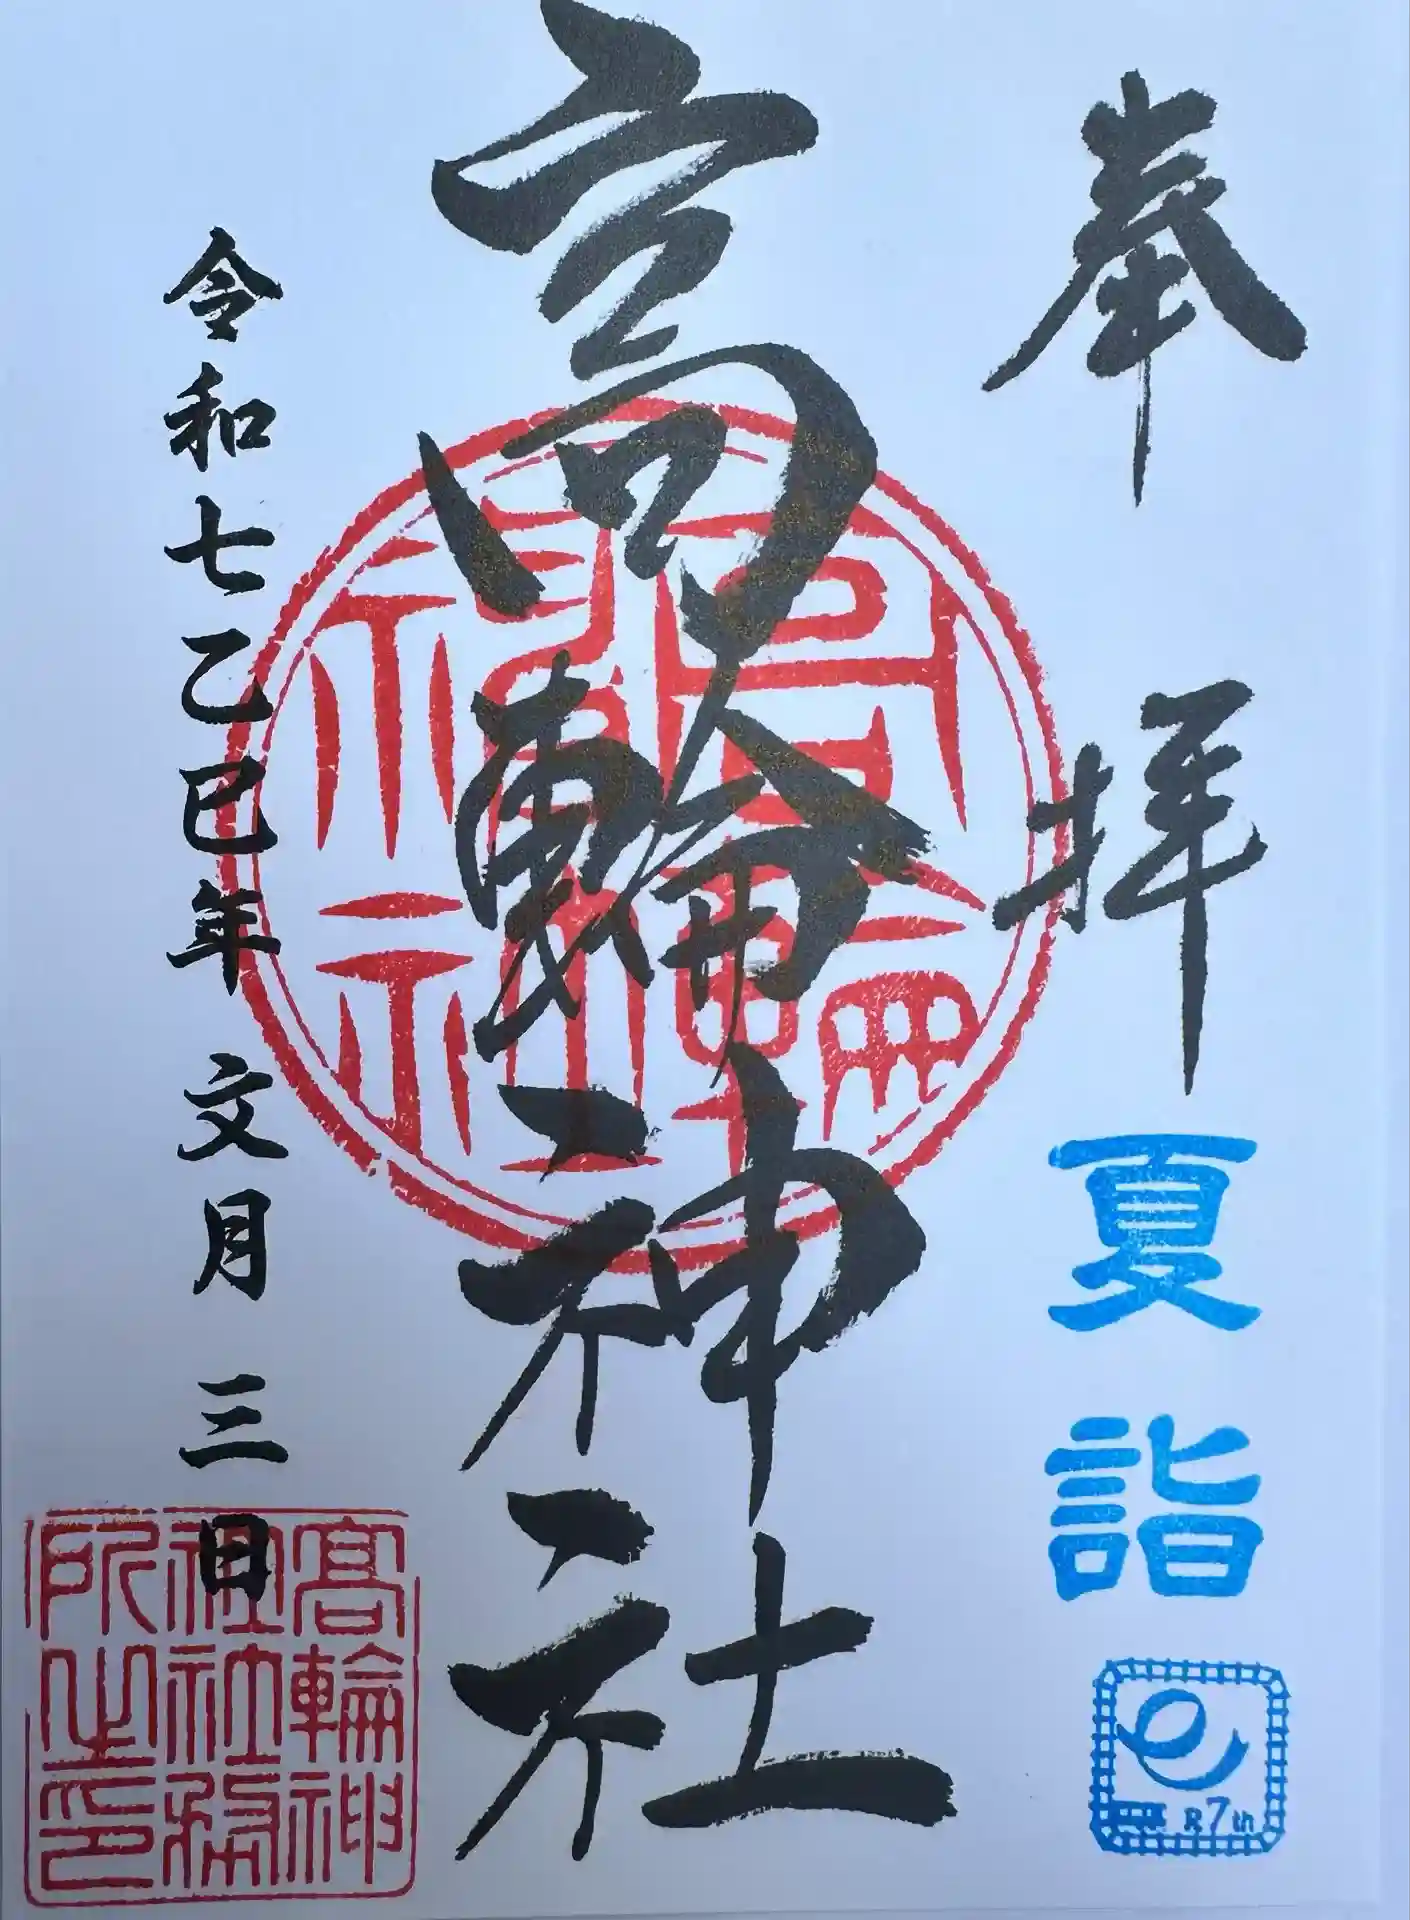 奉拝
夏詣
R7th
高輪神社
令和七乙巳年 文月 三日
高輪神
社務
所之印